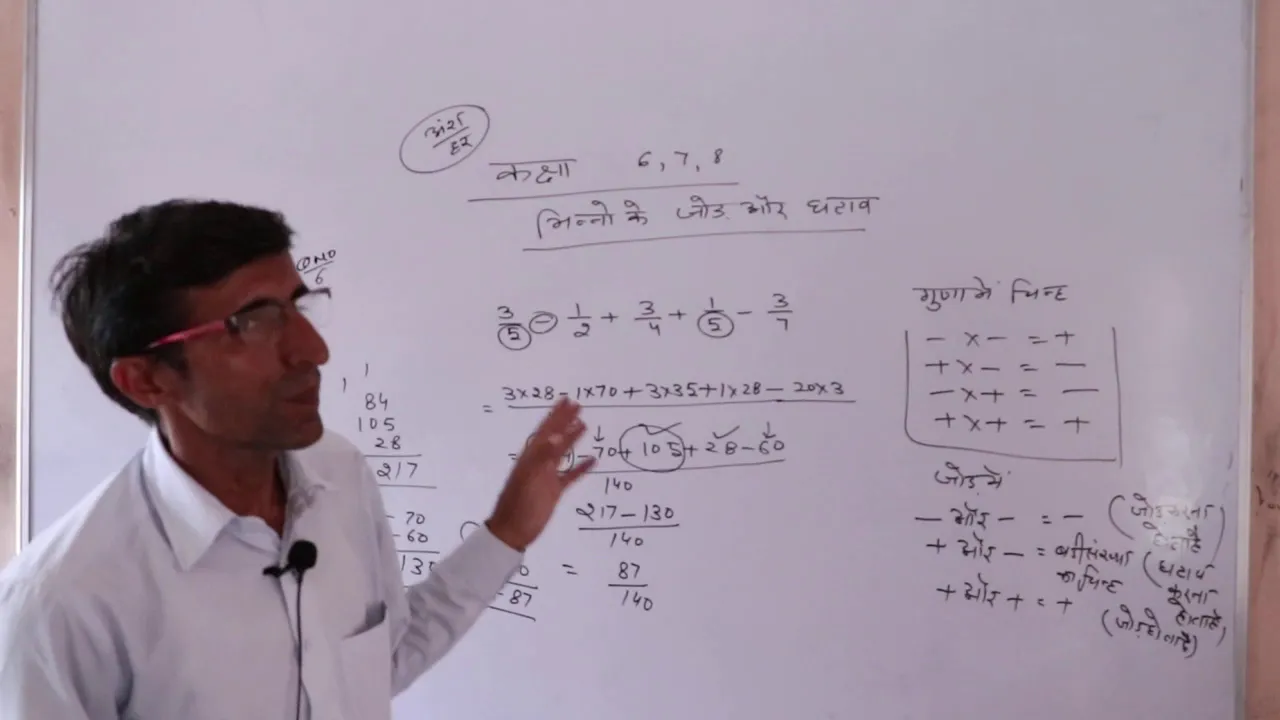 अंश
हर
कक्षा 6, 7, 8
भिन्नो के जोड और घटाव
6
3/5 - 1/2 + 3/4 + 1/5 - 3/7
= 3×28 - 1×70 + 3×35 + 1×28 - 20×3
= - 70 + 105 + 28 - 60
140
217 - 130
140
= 87
140
1
1
84
105
28
217
- 70
- 60
135
0
- 87
गुणा में चिन्ह
- × - = +
+ × - = -
- × + = -
+ × + = +
जोड में
- और - = - (जोड करना होता है)
+ और - = बडी संख्या का चिन्ह (घटाव करना होता है)
+ और + = + (जोड होता है)